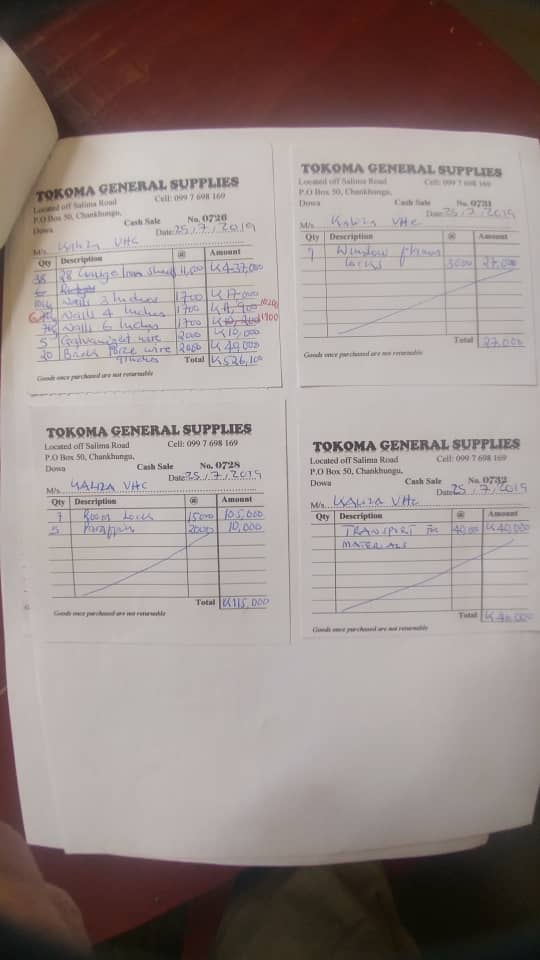 TOKOMA GENERAL SUPPLIES
Located off Salima Road Cell: 099 7 698 169
P.O Box 50, Chankhungu,
Dowa Cash Sale No. 0726
Date: 25,7,2019
M/s. KALIZA VHC
Qty Description @ Amount
38 28 Gauge Iron Sheets K437,000
Nails 3 Inches 1700 K17,000
6 Nails 4 Inches 1700 10200
Nails 6 Inches 1700 11900
5 Galvanized wire 2000 K10,000
20 Brick Force wire 2000 K40,000
Total K526,100
Goods once purchased are not returnable
TOKOMA GENERAL SUPPLIES
Located off Salima Road Cell: 099 7 698 169
P.O Box 50, Chankhungu,
Dowa Cash Sale No. 0731
Date: 25,7,2019
M/s. KALIZA VHC
Qty Description @ Amount
Window
3000 27,000
Total 27,000
Goods once purchased are not returnable
TOKOMA GENERAL SUPPLIES
Located off Salima Road Cell: 099 7 698 169
P.O Box 50, Chankhungu,
Dowa Cash Sale No. 0728
Date: 25,7,2019
M/s. KALIZA VHC
Qty Description @ Amount
7 Room Lock 15000 105,000
5 Paraffin 2000 10,000
Total K115,000
Goods once purchased are not returnable
TOKOMA GENERAL SUPPLIES
Located off Salima Road Cell: 099 7 698 169
P.O Box 50, Chankhungu,
Dowa Cash Sale No. 0732
Date: 25,7,2019
M/s. KALIZA VHC
Qty Description @ Amount
TRANSPORT for K40,000
MATERIALS
Total K40,000
Goods once purchased are not returnable